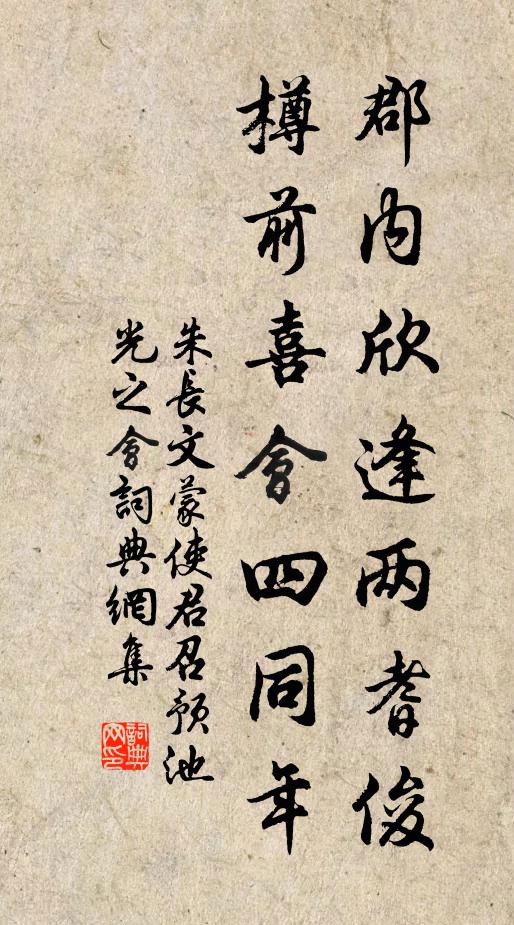 郡内欣逢两耆俊
樽前喜會四同年
朱長文蒙使君召預池
光之會詞典網集
詞典
网印